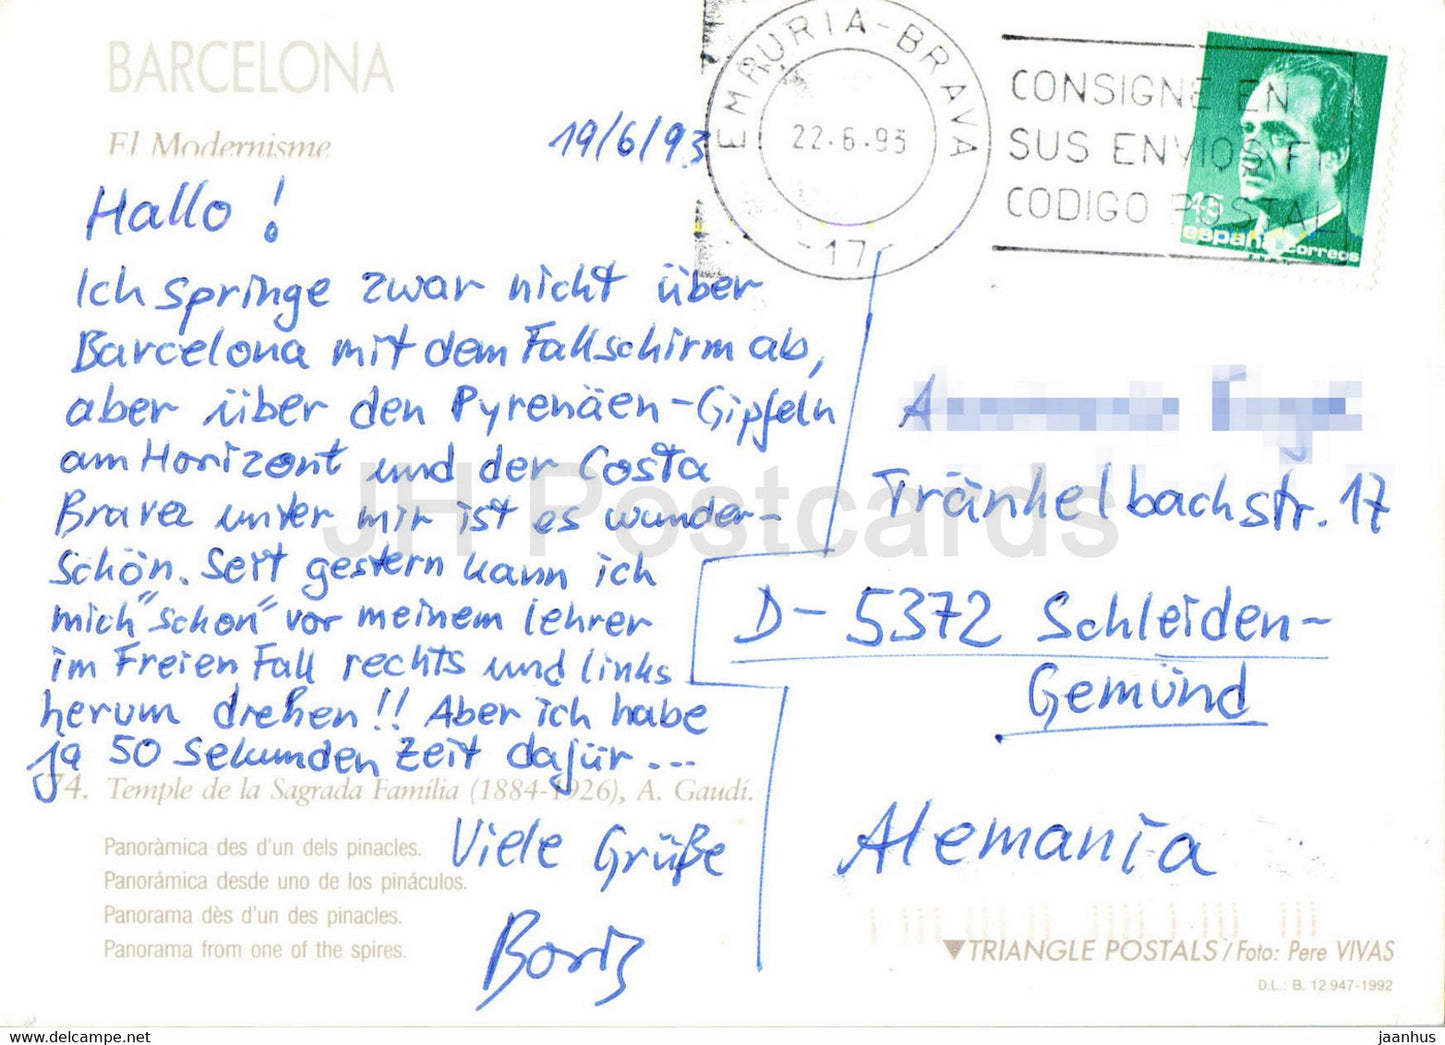 BARCELONA
El Modernisme
19/6/93
EMPURIA-BRAVA
22-6-93
-17-
CONSIGNE EN
SUS ENVIOS EL
CODIGO POSTAL
45
españa correos
Hallo !
Ich springe zwar nicht über
Barcelona mit dem Fallschirm ab,
aber über den Pyrenäen-Gipfeln
am Horizont und der Costa
Brava unter mir ist es wunder-
schön. Seit gestern kann ich
mich "schon" vor meinem Lehrer
im Freien Fall rechts und links
herum drehen!! Aber ich habe
ja 50 Sekunden Zeit dafür...
74. Temple de la Sagrada Família (1884-1926), A. Gaudí.
Viele Grüße
Boris
Panoràmica des d'un dels pinacles.
Panorámica desde uno de los pináculos.
Panorama dès d'un des pinacles.
Panorama from one of the spires.
Tränkelbachstr. 17
D-5372 Schleiden-
Gemünd
Alemania
TRIANGLE POSTALS / Foto: Pere VIVAS
D.L.: B. 12.947-1992
JH Postcards
https://jhpostcards.com
jaanhus